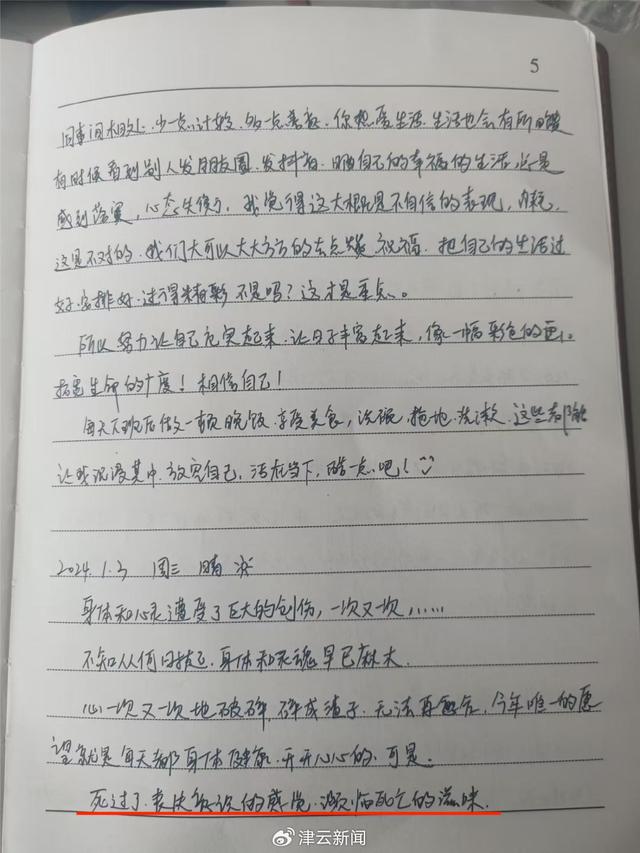 5
同事间相处、少一点计较、多一点善意、你热爱生活、生活也会有所回馈
有时候看到别人发朋友圈、发抖音、晒自己的幸福的生活、还是
感到落寞，心态失衡了、我觉得这大概就是不自信的表现，内耗、
这是不对的、我们大可以大大方方的去点赞祝福、把自己的生活过
好安排好、过得精彩不是吗？这才是重点。
所以努力让自己充实起来、让日子丰富起来，像一幅彩色的画、
拓宽生命的广度！相信自己！
每天下班后做一顿晚饭、享受美食，洗碗、拖地、洗漱、这些都能
让我沉浸其中、放空自己、活在当下，酷一点吧！
2024.1.3 周三 晴
身体和心灵遭受了巨大的创伤，一次又一次，……
不知从何日起、身体和灵魂早已麻木、
心一次又一次地破碎、碎成渣子、无法再愈合、今年唯一的愿
望就是每天都身体健康、开开心心的、可是、
死过了 次的感觉、濒临死亡的滋味、
津云新闻